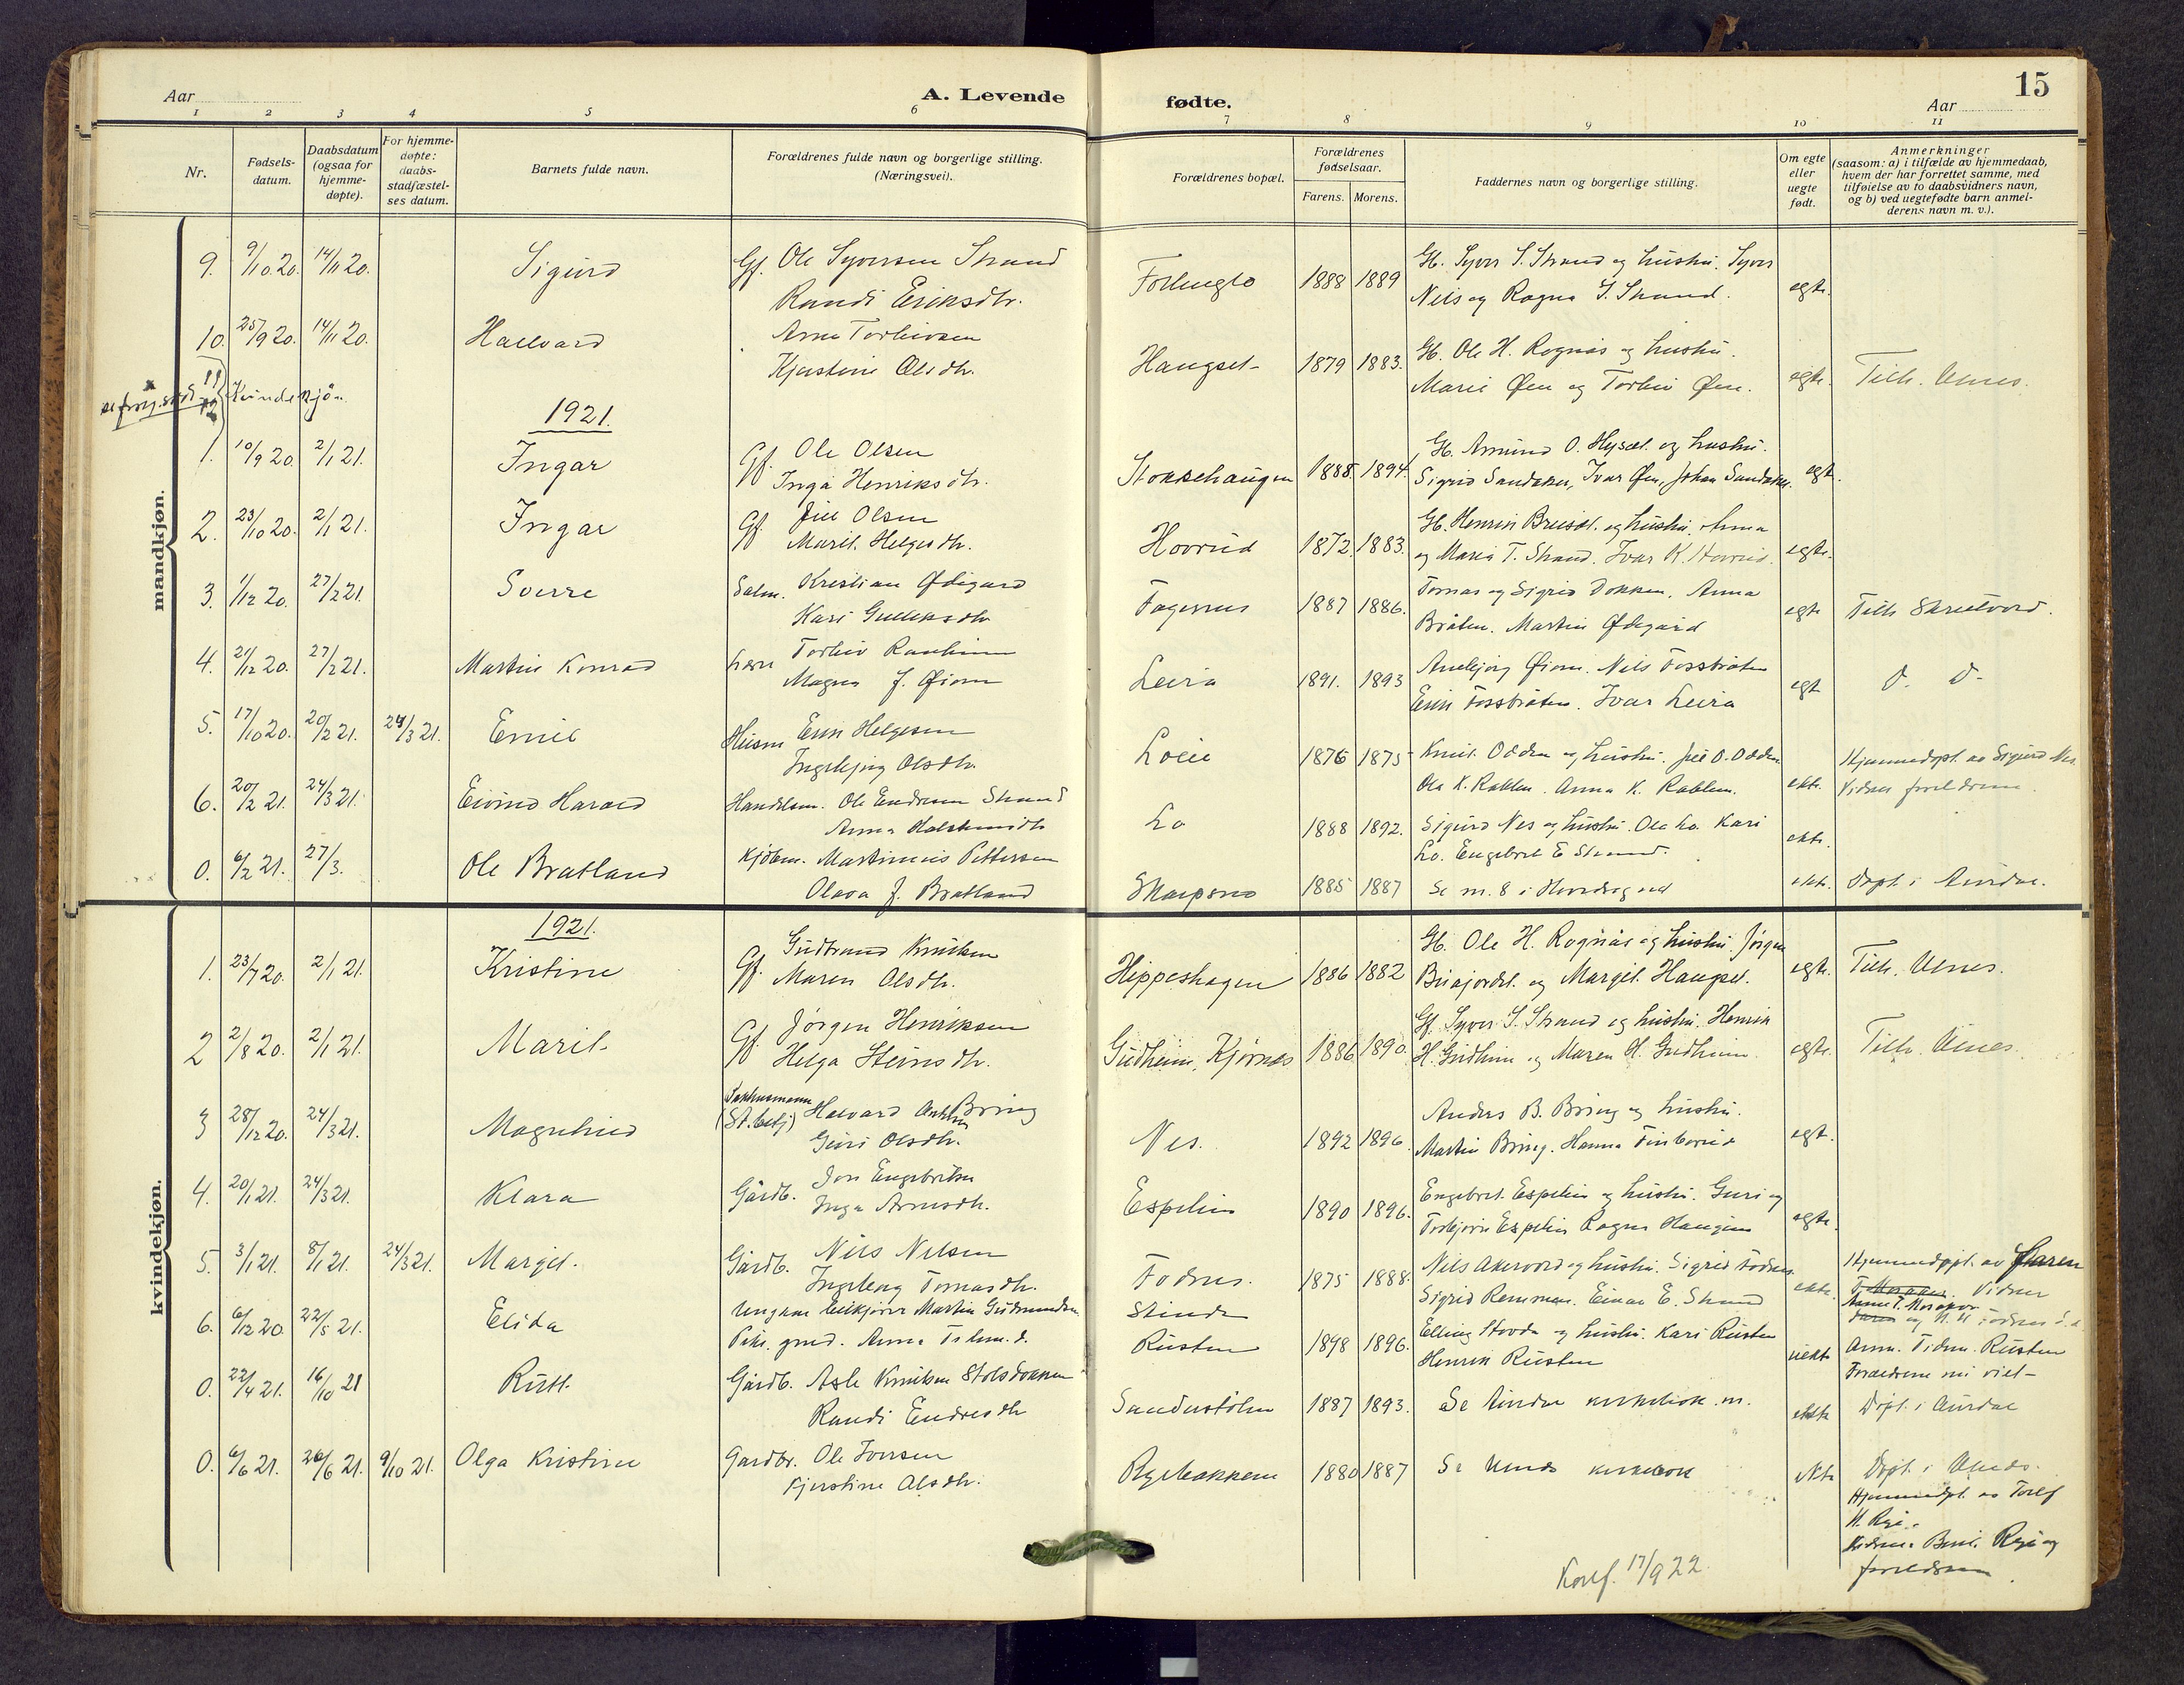 15
Aar
A. Levende
fødte.
Aar
1 2 3 4 5 6 7 8 9 10 11
Nr.
Fødsels-
datum.
Daabsdatum
(ogsaa for
hjemme-
døpte).
For hjemme-
døpte:
daabs-
stadfæstel-
ses datum.
Barnets fulde navn.
Forældrenes fulde navn og borgerlige stilling.
(Næringsvei).
Forældrenes bopæl.
Forældrenes
fødselsaar.
Farens. Morens.
Faddernes navn og borgerlige stilling.
Om egte
eller
uegte
født.
Anmerkninger
(saasom: a) i tilfælde av hjemmedaab,
hvem der har forrettet samme, med
tilføielse av to daabsvidners navn,
og b) ved uegtefødte barn anmel-
derens navn m. v.).
mandkjøn.
9. 9/10 20. 14/11 20. Sigurd Gf. Ole Syversen Strand 1888 1889 Gb. Syver S. Strand og hustru. Syver
Randi Eriksdtr. Nils og Ragna S. Strand. egte.
10. 25/9 20. 14/11 20. Hallvard Arne Torleivsen Haugset 1879 1883. Gb. Ole H. Rognås og hustru.
Kjerstine Olsdtr. Marie Øen og Torleiv Øen. egte. Tilh. Ulnes.
11 12 Kvindekjøn
1921.
1. 10/9 20. 2/1 21. Ingar Gf. Ole Olsen Stokkehaugen 1888. 1894. Gb. Amund O. Hyset. og hustru.
Inga Henriksdtr. Sigrid Sandaker, Ivar Øen, Johan Sandaker. egt.
2. 23/10 20. 2/1 21. Ingar Gf. Juel Olsen Hovrud 1872 1883. Gb. Henrik og hustru. Anna
Marit Helgesdtr. og Maria T. Strand. Ivar K. Hovrud. egte.
3. 1/12 20. 27/2 21. Sverre Salm. Kristian Ødegard Fagernes 1887 1886. Tomas og Sigrid Dokken. Anna
Kari Gulliksdtr Bråten. Martin Ødegård egte Tilh Skrutvold.
4. 21/12 20. 27/2 21. Martin Konrad Torleiv Leira 1891. 1893 Øiom. Nils Fossbråten
Magna J. Øiom Erik Fossbråten. Ivar Leira egt D. D-
5. 17/10 20. 20/2 21. 24/3 21. Emil Husm Erik Helgesen 1876 1875 Knut Odden og hustru. Juel O. Odden Hjemmedøpt. av Sigurd Nes.
Ingebjørg Olsdtr. Ola K. Rablen. Anna K. Rablen. ekte. Vidner foreldrene.
6. 20/2 21. 24/3 21. Eivind Harald Handelsm. Ole Endresen Strand Lo 1888 1892. Sigurd Nes og hustru. Ola Lo. Kari
Anna Lo. Engebret E Strand. ekte.
0. 6/2 21. 27/3. Ole Bratland Kjøbm. Martinius Pettersen Skarpsno 1885 1887 Se nr. 8 i ekte. Døpt i Aurdal.
Olava J. Bratland
kvindekjøn.
1921.
1. 23/7 20. 2/1 21. Kristine Gf. Gudbrand Knutsen Hippeshagen 1886 1882 Gb. Ole H. Rognås og hustru. Jörgen
Maren Olsdtr. og Margit Haugset. egte. Tilh. Ulnes.
2 2/8 20. 2/1 21. Marit Gf. Jörgen Henriksen Gudheim, Kjörnes 1886 1890. Gf. Syver S. Strand og hustru. Henrik
Helga Steinsdtr. H. Gudheim og Maren H. Gudheim. egte. Tilh. Ulnes.
3 28/12 20. 24/3 21. Magnhild (St. betj) Halvard Bring Nes. 1892 1896 Anders B. Bring og hustru.
Guri Olsdtr. Martin Bring. Hanna egt.
4. 20/1 21. 24/3 21. Klara Gårdb. Jon Engebritsen Espelien 1890 1896. Engebret Espelien og hustru. Guri og
Inga Arnesdtr. Torbjørn Espelien Ragna Haugen egte.
5. 3/1 21. 8/1 21. 24/3 21. Margit. Gårdb. Nils Nilsen Fodnes. 1875 1888. Nils og hustru. Sigrid Fodnes. Hjemmedøpt. av Maren
Ingeborg Tomasdtr. Sigrid Remmen. Einar E. Strand ekte. Vidner
6. 6/12 20. 22/5 21. Elida Ungkar Martin Gudmundsen Rusten 1898 1896. Elling og hustru. Kari Rusten
Pike. Anna Henrik Rusten uekte Rusten
0. 22/4 21. 16/10 21 Rutt Gårdb. Asle Knutsen Stolsdokken Sandestølen 1887 1893. Se Aurdal kirkebok nr. ekte Døpt i Aurdal
Randi Endresdtr
0. 6/6 21. 26/6 21. 9/10 21. Olga Kristine Gardbr. Ole Iversen Ryebakken 1880 1887 Se Ulnes kirkebok ekte Døpt i Ulnes.
Kjerstine Olsdtr. Hjemmedøpt av
Rye og
foreldrene
Konf. 17/9 22.